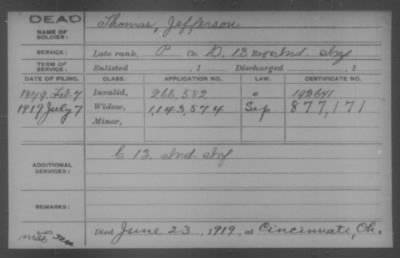 DEAD
NAME OF SOLDIER: Thomas, Jefferson
SERVICE: Late rank, P Co D, 13 Reg't Ind Inf
TERM OF SERVICE: Enlisted , 1 Discharged , 1
DATE OF FILING. CLASS. APPLICATION NO. LAW. CERTIFICATE NO.
1879 Feb 7 Invalid, 266,582 142641
1919 July 7 Widow, 1,143,574 877,171
Minor,
ADDITIONAL SERVICES: C 13 Ind Inf
REMARKS:
Died June 23, 1919, at Cincinnati, Oh.